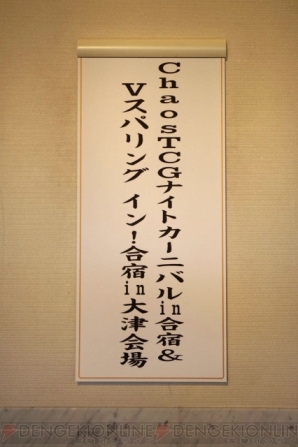 ChaosTCGナイトカーニバルin合宿&
Vスパリング イン!合宿in大津会場
DENGEKIONLINE DENGEKIONLIN